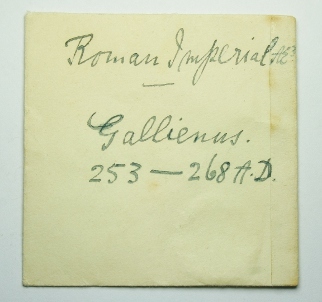 Roman Imperial AE3
Gallienus.
253 — 268 A.D.